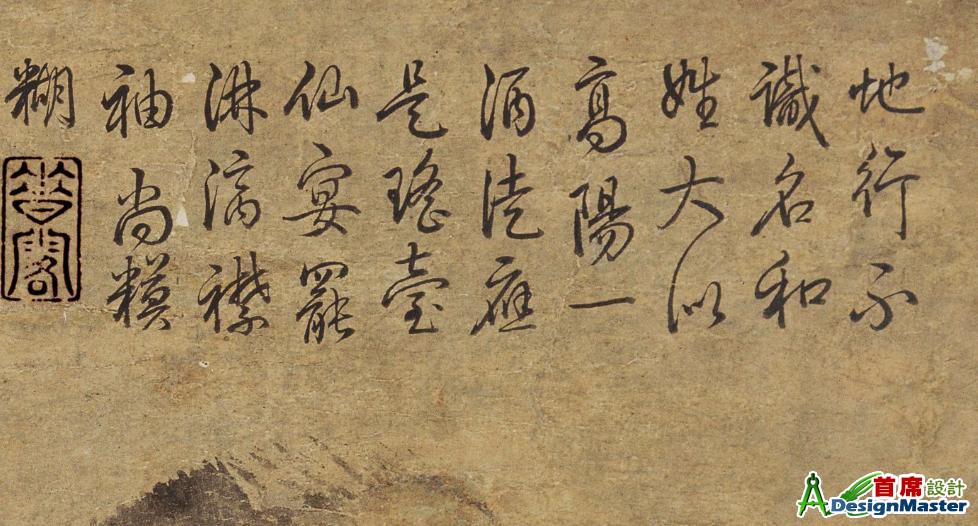 地行不
識名和
姓大似
高陽一
酒徒應
是瑤臺
仙宴罷
淋漓襟
袖尚模
糊
首席設計
DesignMaster